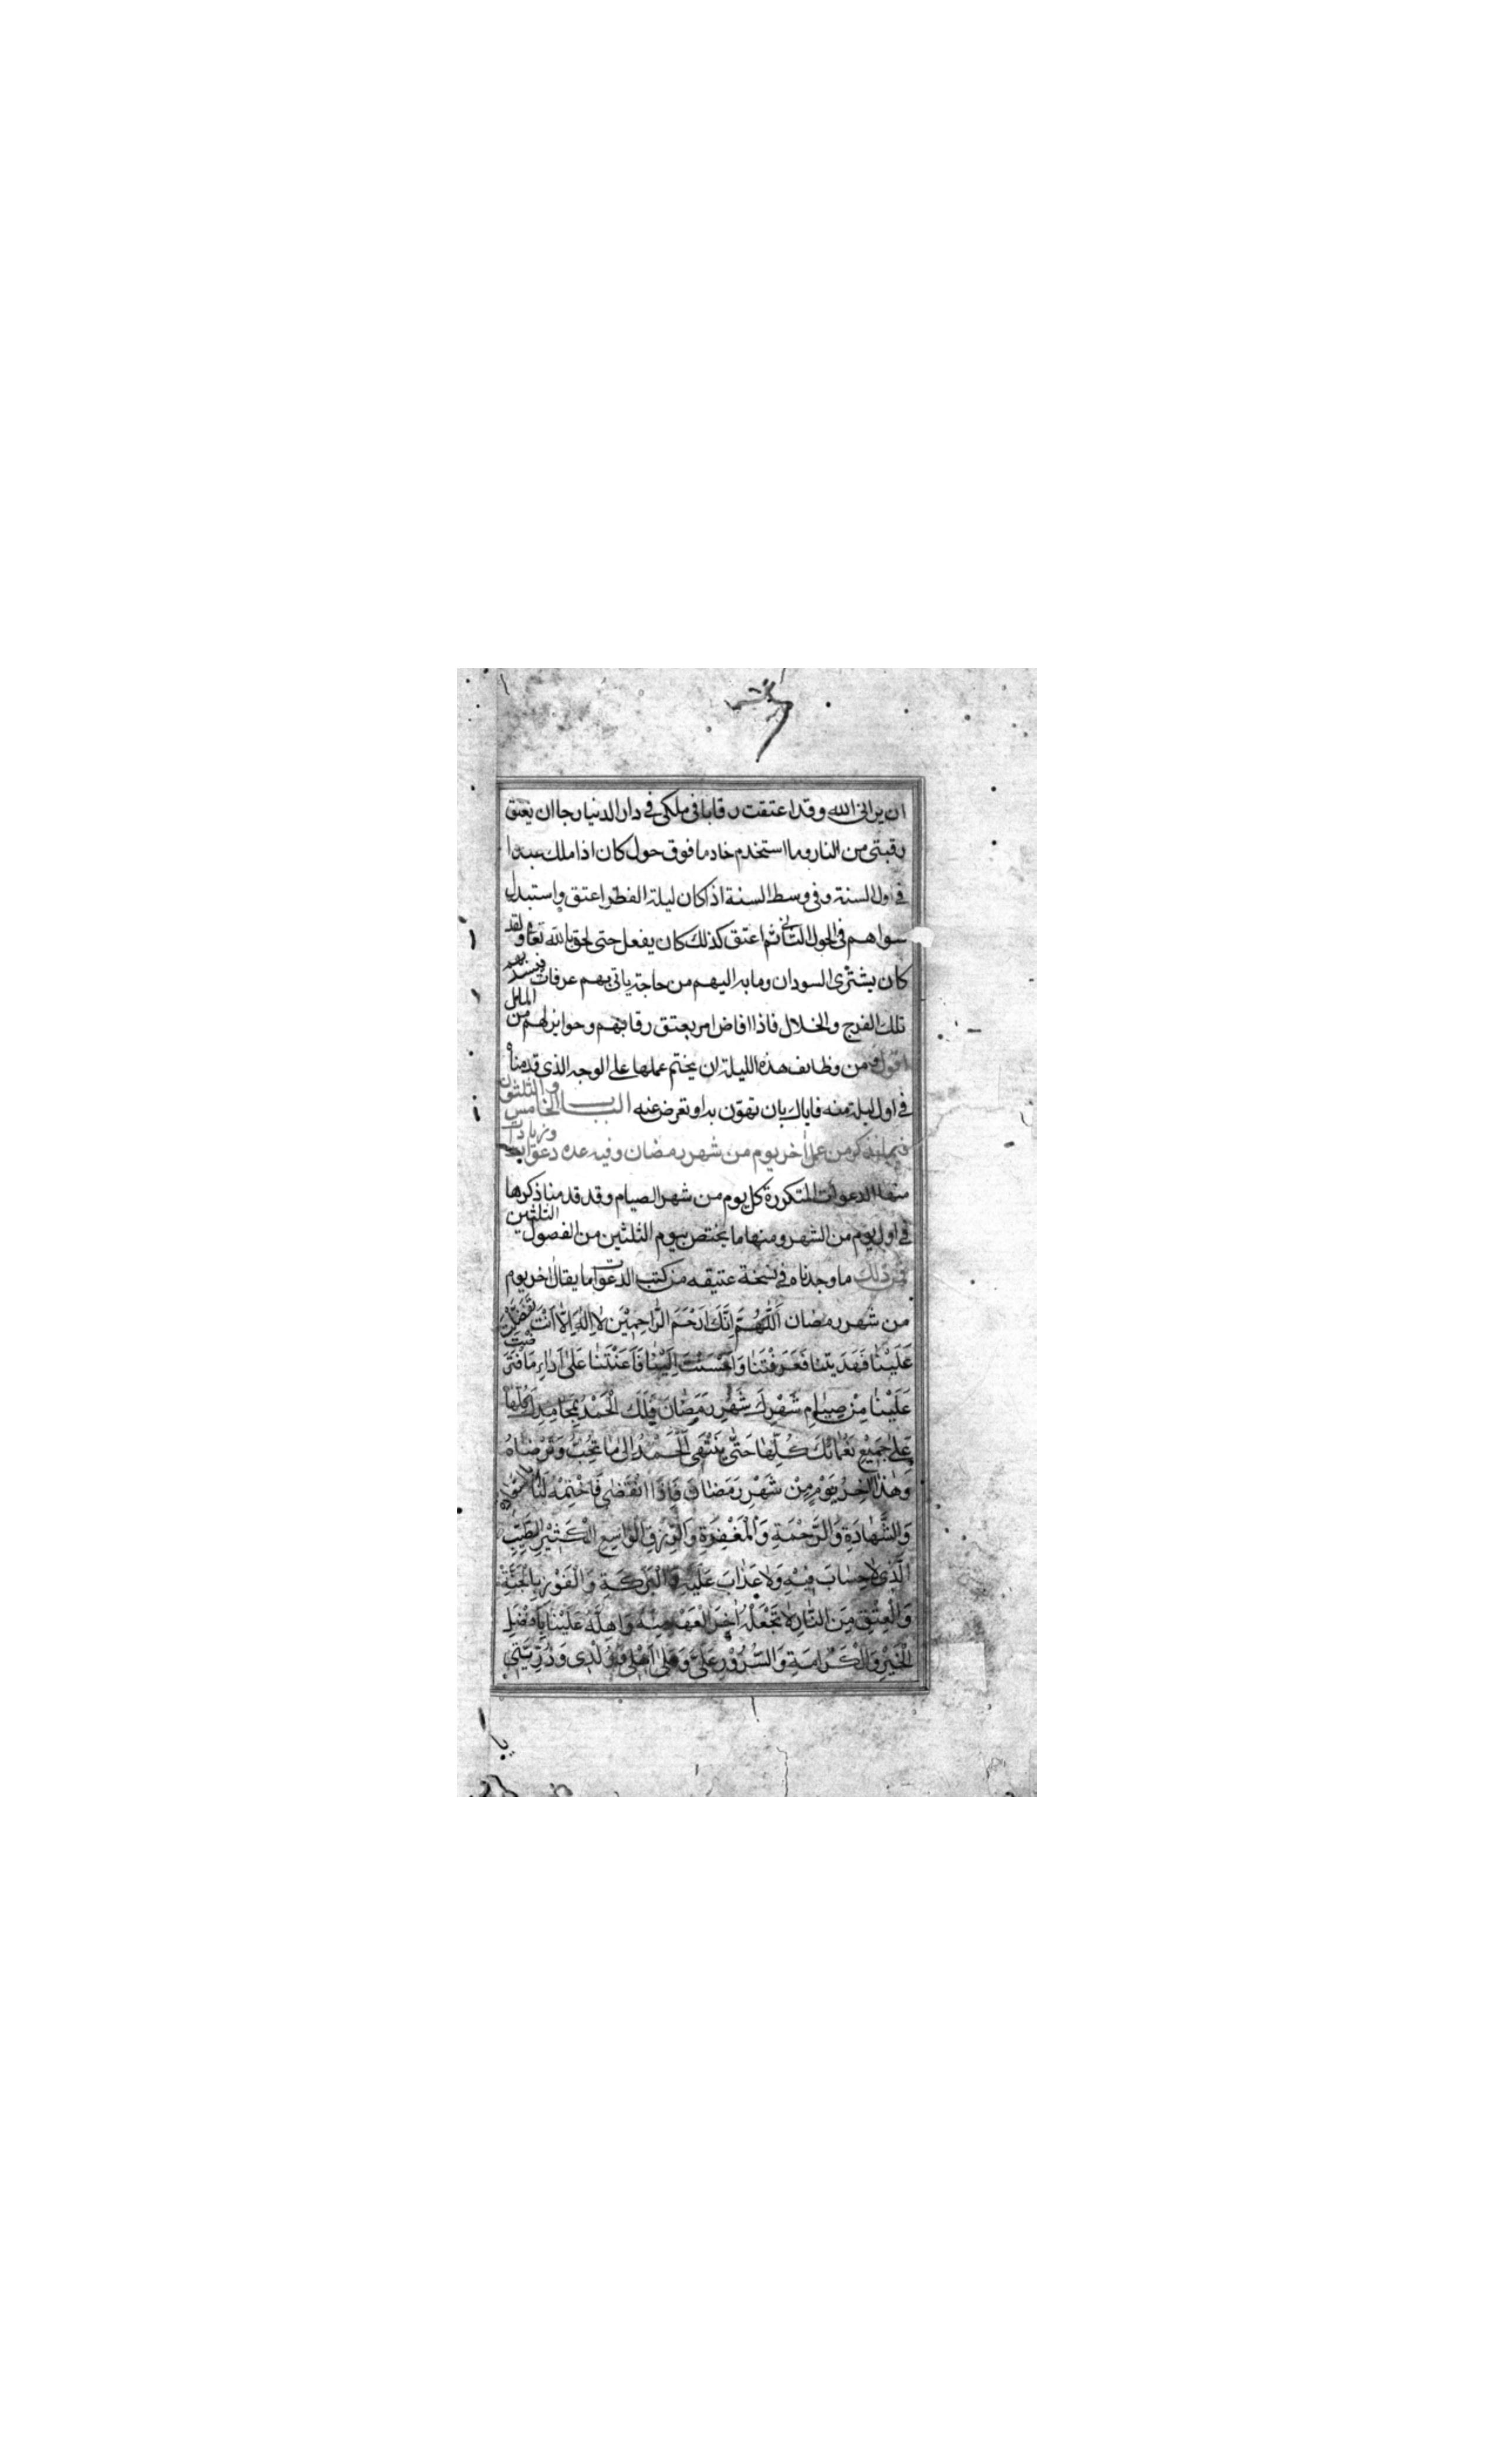 وقف
ان يراني الله وقد اعتقت رقابا في ملكي في دار الدنيا رجا ان يعتق
رقبتي من النار وما استخدم خادما فوق حول كان اذا ملك عبدا
في اول السنة وفي وسط السنة اذا كان ليلة الفطر اعتق واستبدل
سواهم في الحول الثاني ثم اعتق كذلك كان يفعل حتى لحق بالله تعا ولقد
كان يشترى السودان وما به اليهم من حاجة ياتي بهم عرفات فيسد بهم
تلك الفرج والخلال فاذا افاض امر بعتق رقابهم وجوايز لهم من المال
اقول ومن وظايف هذه الليلة ان يختم عملها على الوجه الذي قدمناه
في اول ليلة منه فاياك بان تهون به او تعرض عنه الباب الخامس والثلثون
فيما نذكر من عمل اخر يوم من شهر رمضان وفيه عدة دعوات وزيادات
منها الدعوات المتكررة كل يوم من شهر الصيام وقد قدمنا ذكرها
في اول يوم من الشهر ومنها ما يختص بيوم الثلثين من الفصول الثلثين
فمن ذلك ما وجدناه في نسخة عتيقه من كتب الدعوات ما يقال اخر يوم
من شهر رمضان اَللّٰهُمَّ اِنَّكَ اَرْحَمُ الرَّاحِمِيْنَ لَا اِلٰهَ اِلَّا اَنْتَ تَفَضَّلْتَ
عَلَيْنَا فَهَدَيْتَنَا فَعَرَفْتَنَا وَاَحْسَنْتَ اِلَيْنَا فَاَعَنْتَنَا عَلٰى اَدَاءِ مَا فَتَرَضْتَ
عَلَيْنَا مِنْ صِيَامِ شَهْرِكَ شَهْرِ رَمَضَانَ فَلَكَ الْحَمْدُ بِمَحَامِدِكَ كُلِّهَا
عَلٰى جَمِيْعِ نَعْمَائِكَ كُلِّهَا حَتّٰى يَنْتَهِيَ الْحَمْدُ اِلٰى مَا تُحِبُّ وَتَرْضَاهُ
وَهٰذَا اٰخِرُ يَوْمٍ مِنْ شَهْرِ رَمَضَانَ فَاِذَا انْقَضٰى فَاخْتِمْهُ لَنَا بِالسَّعَادَةِ
وَالشَّهَادَةِ وَالرَّحْمَةِ وَالْمَغْفِرَةِ وَالرِّزْقِ الْوَاسِعِ الْكَثِيْرِ الطَّيِّبِ
الَّذِيْ لَا حِسَابَ فِيْهِ وَلَا عَذَابَ عَلَيْهِ وَالْبَرَكَةِ وَالْفَوْزِ بِالْجَنَّةِ
وَالْعِتْقِ مِنَ النَّارِ لَا تَجْعَلْهُ اٰخِرَ الْعَهْدِ مِنْهُ وَاَهِلَّهُ عَلَيْنَا بِاَفْضَلِ
الْخَيْرِ وَالْكَرَامَةِ وَالسُّرُوْرِ عَلَيَّ وَعَلٰى اَهْلِيْ وَوُلْدِيْ وَذُرِّيَّتِيْ